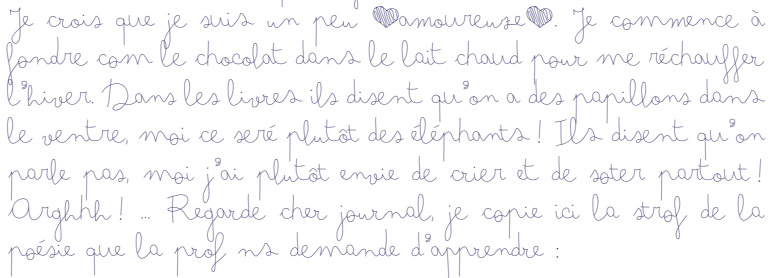 Je crois que je suis un peu ♥amoureuse♥. Je commence à
fondre com le chocolat dans le lait chaud pour me réchauffer
l'hiver. Dans les livres ils disent qu'on a des papillons dans
le ventre, moi ce seré plutôt des éléphants ! Ils disent qu'on
parle pas, moi j'ai plutôt envie de crier et de soter partout !
Arghhh ! ... Regarde cher journal, je copie ici la strof de la
poésie que la prof ns demande d'apprendre :